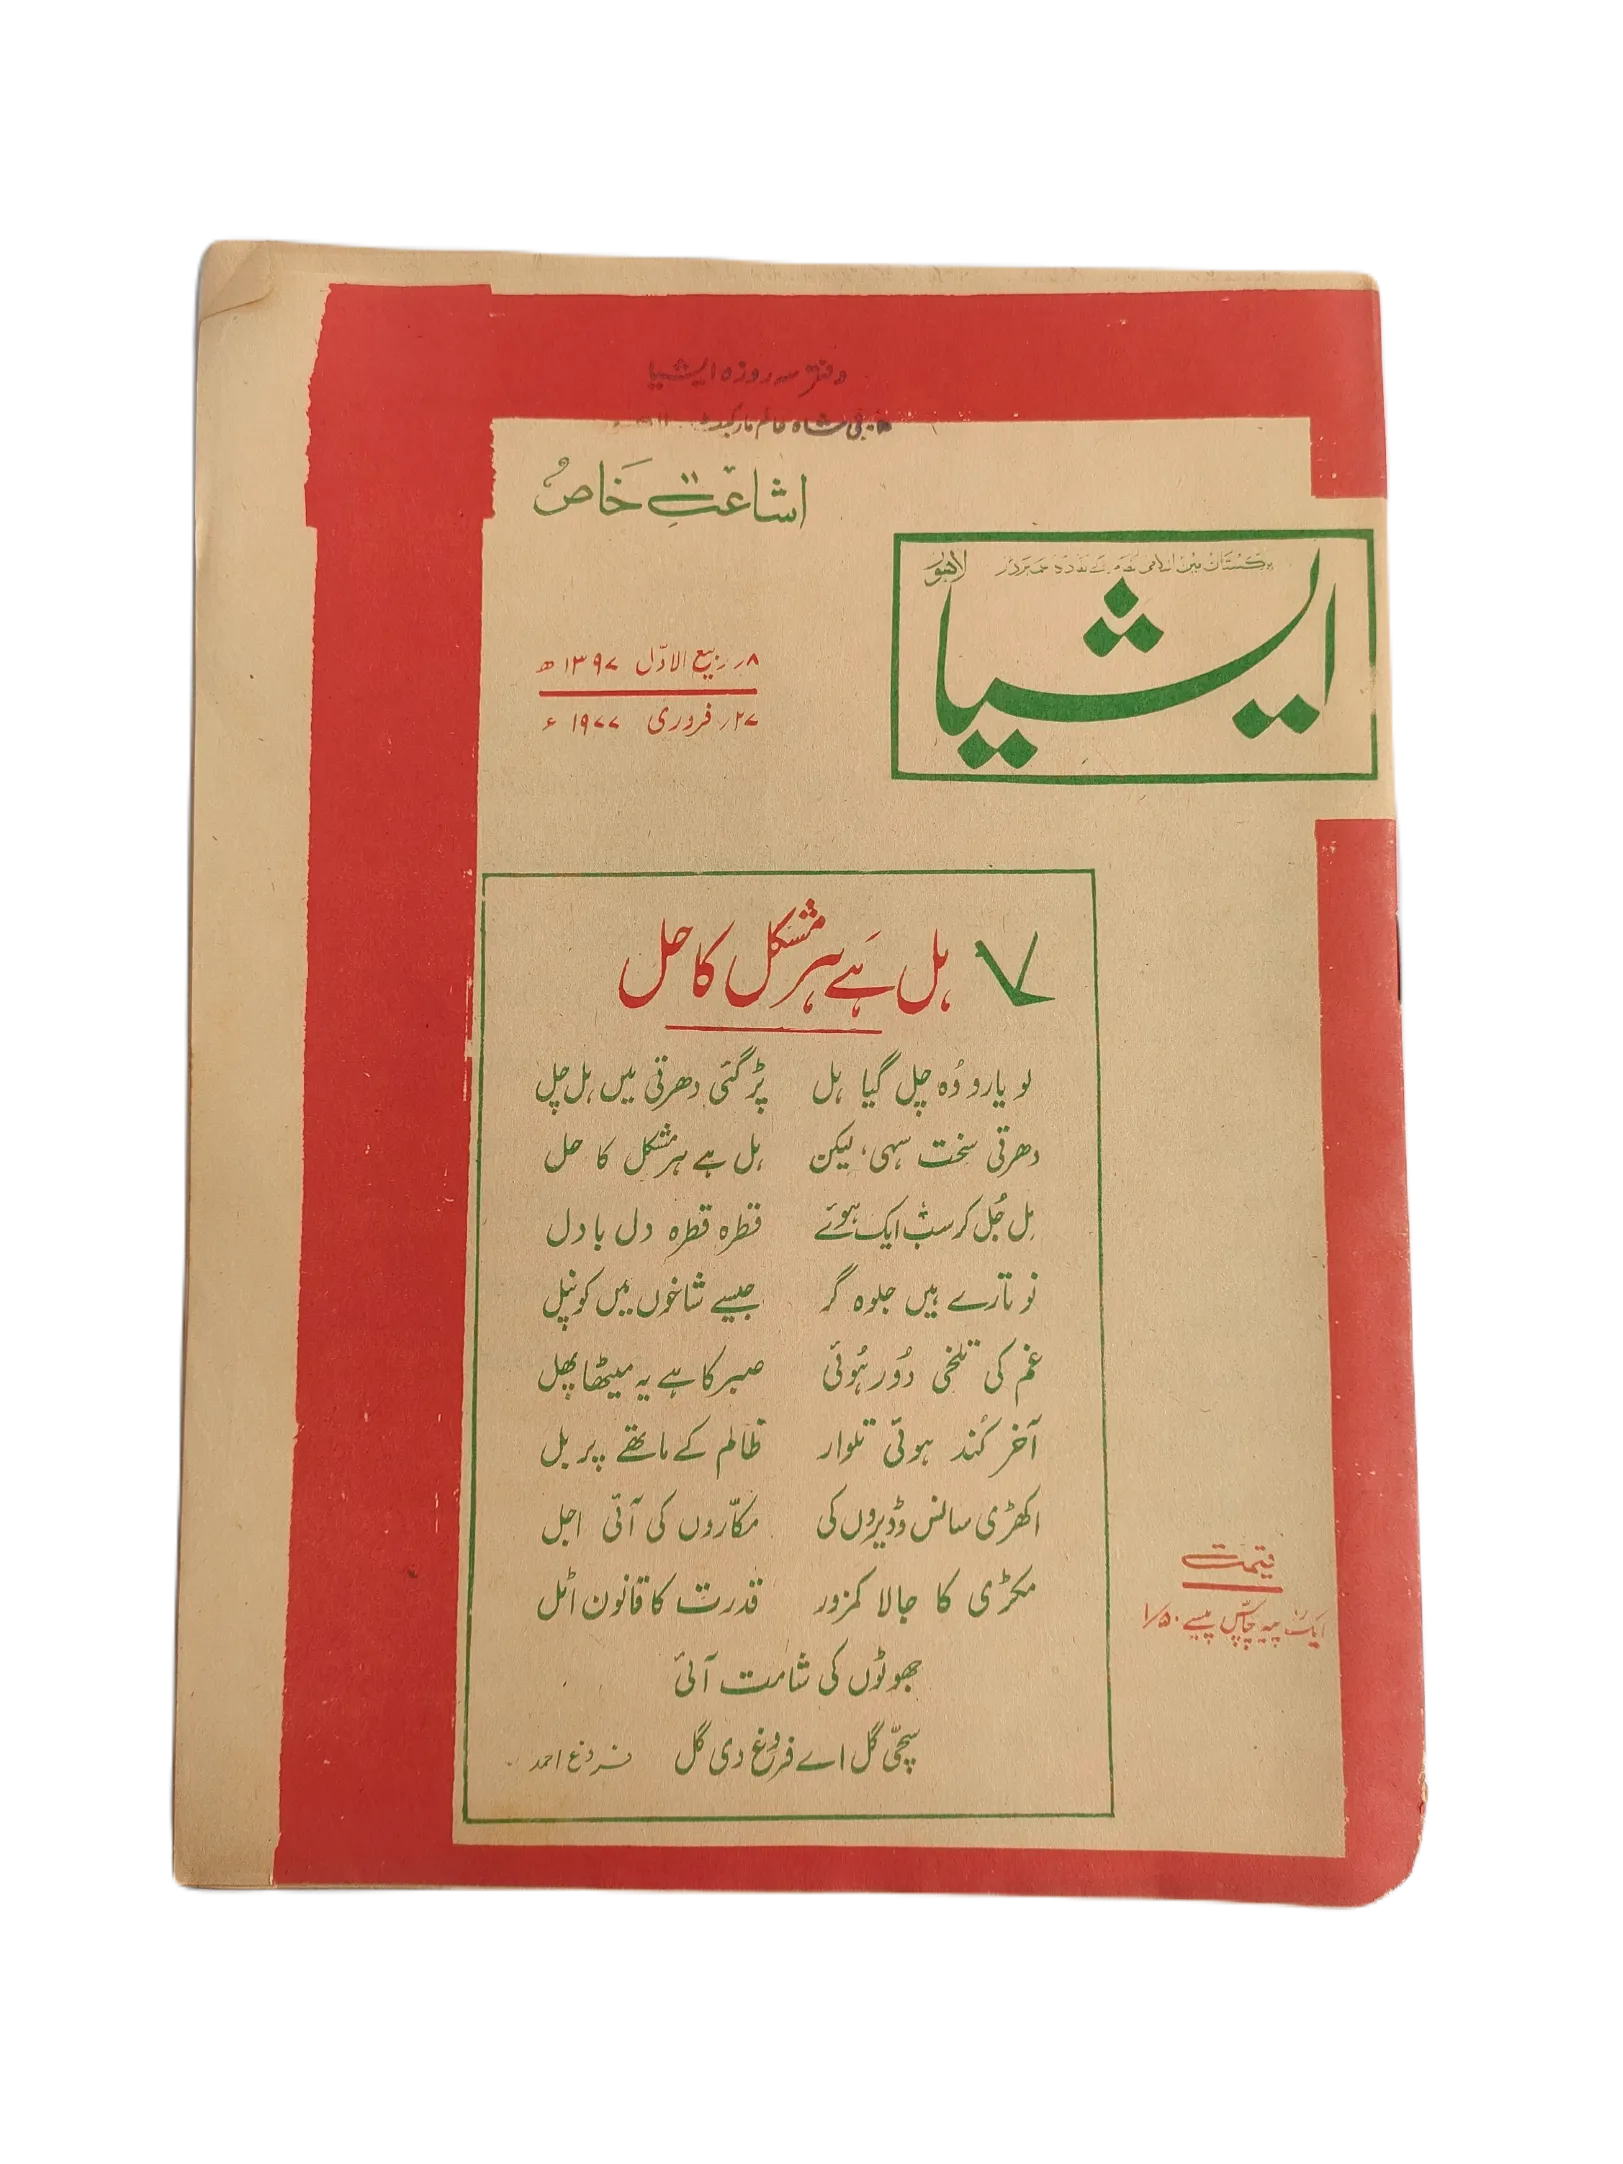 دفتر سہ روزہ ایشیا
شاہ عالم مارکیٹ
اشاعتِ خاص
لاہور
ایشیا
۸ر ربیع الاوّل ۱۳۹۷ھ
۲۷ر فروری ۱۹۷۷ء
ہل ہے ہر مشکل کا حل
لو یارو وُہ چل گیا ہل پڑ گئی دھرتی میں ہل چل
دھرتی سخت سہی، لیکن ہل ہے ہر مشکل کا حل
مِل جُل کر سب ایک ہوئے قطرہ قطرہ دل بادل
نو تارے ہیں جلوہ گر جیسے شاخوں میں کونپل
غم کی تلخی دُور ہُوئی صبر کا ہے یہ میٹھا پھل
آخر کُند ہوئی تلوار ظالم کے ماتھے پر بل
اکھڑی سانس وڈیروں کی مکّاروں کی آئی اجل
مکڑی کا جالا کمزور قدرت کا قانون اٹل
جھوٹوں کی شامت آئی
سچّی گل اے فروغ دی گل
فروغ احمد
قیمت
ایک روپیہ پچاس پیسے ۱/۵۰